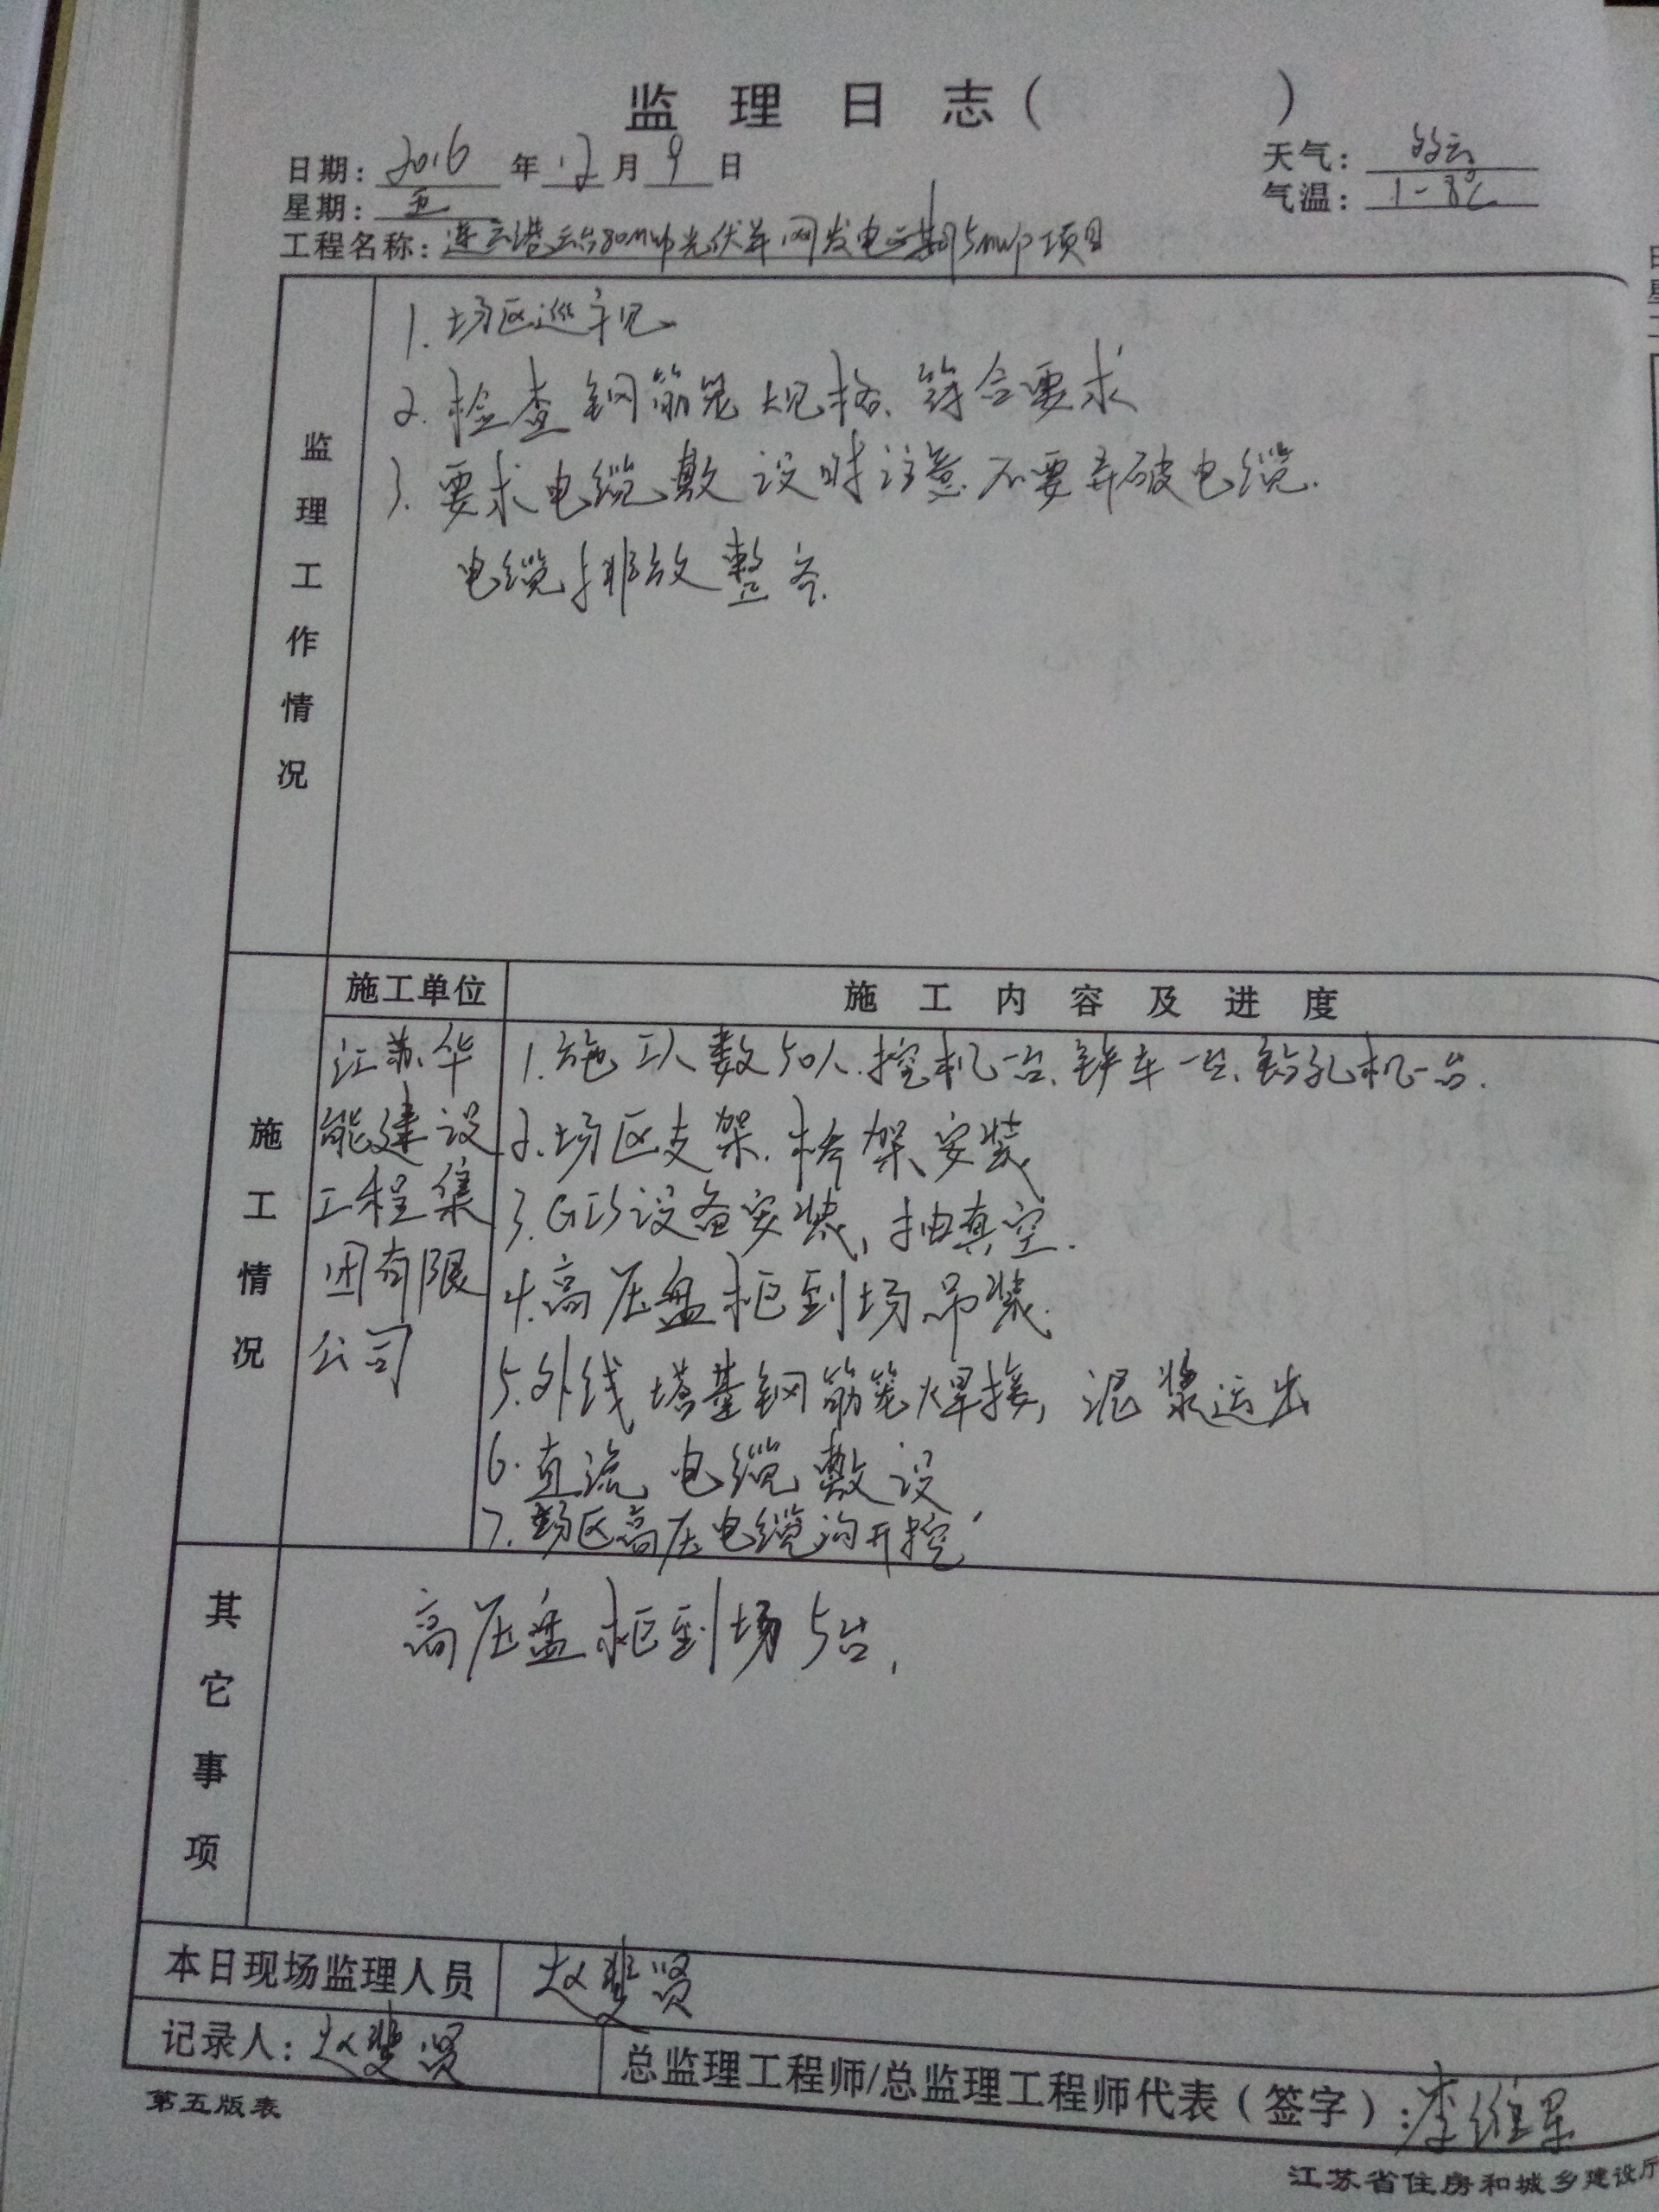 监理日志（ ）
日期：2016年12月9日 天气：多云
星期：五 气温：1-8℃
工程名称：连云港云台80MWp光伏并网发电 期 5MWp项目
监理工作情况
1.场区巡视
2.检查钢筋笼规格、符合要求
3.要求电缆敷设时注意不要弄破电缆.
电缆排放整齐.
施工情况
施工单位 施工内容及进度
江苏华
能建设
工程集
团有限
公司
1.施工人数50人.挖机一台、铲车一台、钻孔机一台.
2.场区支架.桥架安装
3.GIS设备安装、抽真空.
4.高压盘柜到场吊装.
5.外线塔基钢筋笼焊接，泥浆运出
6.直流电缆敷设
7.场区高压电缆沟开挖
其它事项
高压盘柜到场5台，
本日现场监理人员 赵 贤
记录人：赵 贤 总监理工程师/总监理工程师代表（签字）：李维
第五版表
江苏省住房和城乡建设厅